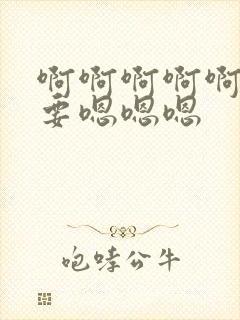 啊啊啊啊啊
要嗯嗯嗯
咆哮公牛